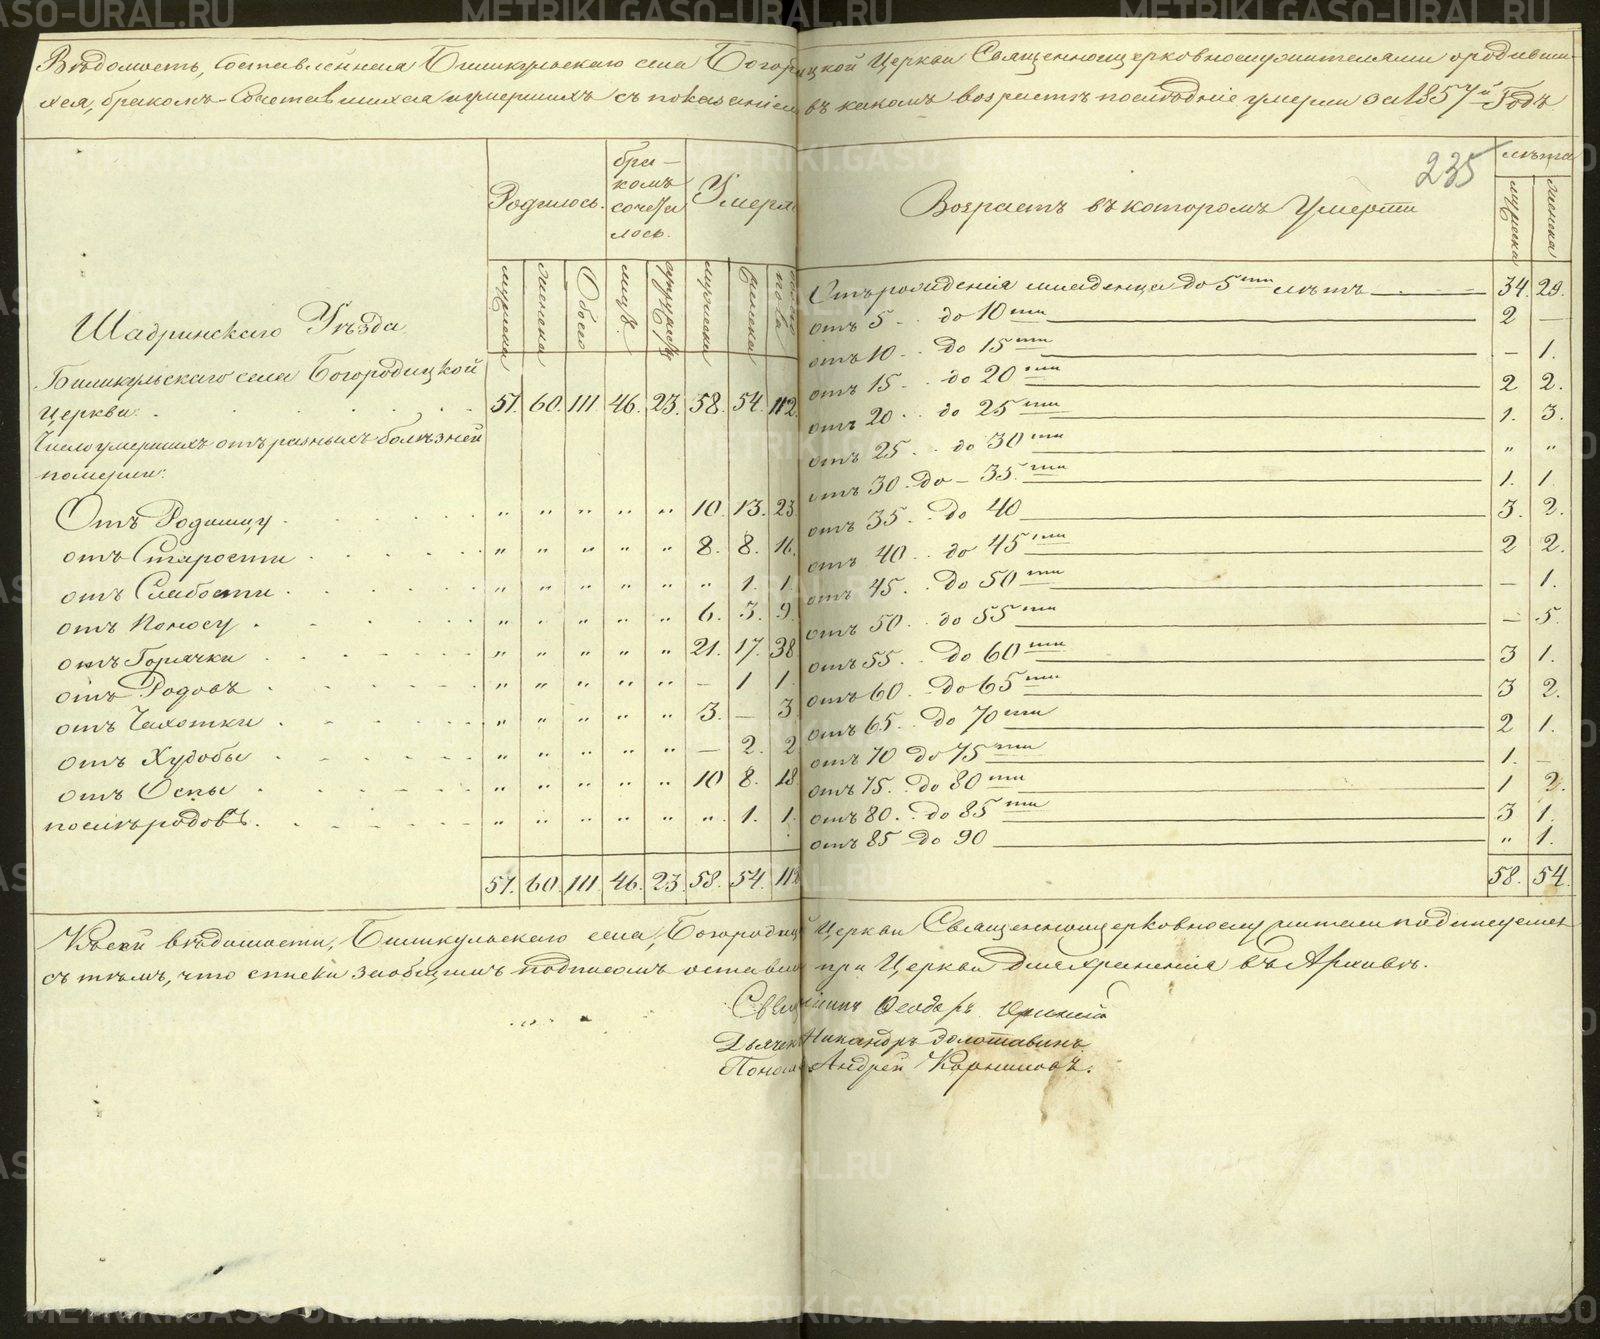 Вѣдомость, составленная Бишкульскаго села Богородицкой Церкви Священноцерковнослужителями о родивши-
хся, бракомъ сочетавшихся и умершихъ съ показаніемъ въ какомъ возрастѣ послѣдніе умерли за 1857й Годъ
235
Родилось.
бра-
комъ
сочета
лось.
Умерло
Возрастъ въ которомъ Умерти
лѣта
мужеска
женска
мужеска
женска
Обоего
мужеска
женска
обоего
пола
Шадринскаго Уѣзда
Бишкульскаго села Богородицкой
Церкви. 51. 60. 111. 46. 23. 58. 54. 112.
Число умершихъ отъ разныхъ болѣзней
померли:
Отъ Родимцу " " " " " 10. 13. 23
отъ Старости " " " " " 8. 8. 16.
отъ Слабости " " " " " " 1. 1.
отъ Поносу " " " " " 6. 3. 9.
отъ Горячки " " " " " 21. 17. 38
отъ Родовъ " " " " " — 1 1
отъ Чахотки " " " " " 3. — 3
отъ Худобы " " " " " — 2. 2
отъ Оспы " " " " " 10 8. 18
послѣ родовъ. " " " " " " 1. 1.
51. 60. 111. 46. 23. 58. 54. 112
Отъ рожденія младенца до 5ти лѣтъ 34. 29.
отъ 5 до 10ти 2 —
отъ 10 до 15ти — 1.
отъ 15 до 20ти 2 2.
отъ 20 до 25ти 1. 3.
отъ 25 до 30ти " "
отъ 30 до 35ти 1. 1.
отъ 35 до 40 3. 2.
отъ 40 до 45ти 2 2.
отъ 45 до 50ти — 1.
отъ 50 до 55ти — 5.
отъ 55 до 60ти 3 1.
отъ 60 до 65ти 3 2.
отъ 65 до 70ти 2 1.
отъ 70 до 75ти 1. —
отъ 75 до 80ти 1 2.
отъ 80 до 85ти 3 1.
отъ 85 до 90 " 1.
58. 54.
Къ сей вѣдомости, Бишкульскаго села, Богородицкой Церкви Священноцерковнослужители подписуемся
съ тѣмъ, что списки за общимъ подписомъ оставлены при Церкви для храненія въ Архивѣ.
Священникъ Ѳеодоръ
Дьячекъ Никандръ Золотавинъ
Пономарь Андрей Корниловъ.
METRIKI.GASO-URAL.RU